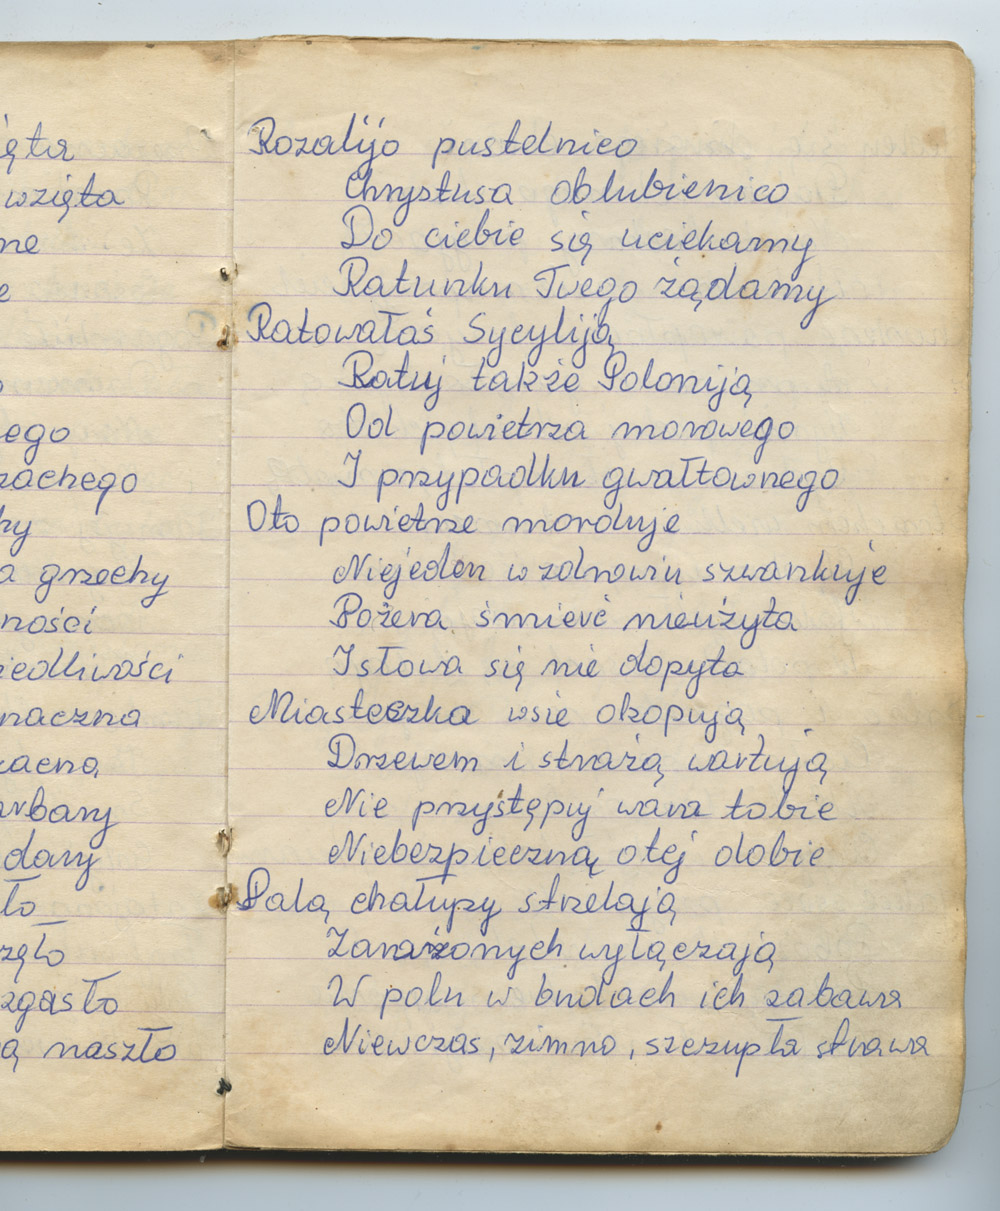 ęta
wzięta
ne
e
ego
zachego
hy
a grzechy
ności
iedliwości
naczna
zacną
arbary
dany
ło
zęło
zgasło
ą naszło
Rozalijo pustelnico
Chrystusa oblubienico
Do ciebie się uciekamy
Ratunku Twego żądamy
Ratowałaś Sycyliją
Ratuj także Poloniją
Od powietrza morowego
I przypadku gwałtownego
Oto powietrze morduje
Niejeden w zdrowiu szwankuje
Pożera śmierć nieużyta
I słowa się nie dopyta
Miasteczka wsie okopują
Drzewem i strażą wartują
Nie przystępuj wara tobie
Niebezpieczną otej dobie
Palą chałupy strzelają
Zarażonych wyłączają
W polu w budach ich zabawa
Niewczas, zimno, szczupła strawa